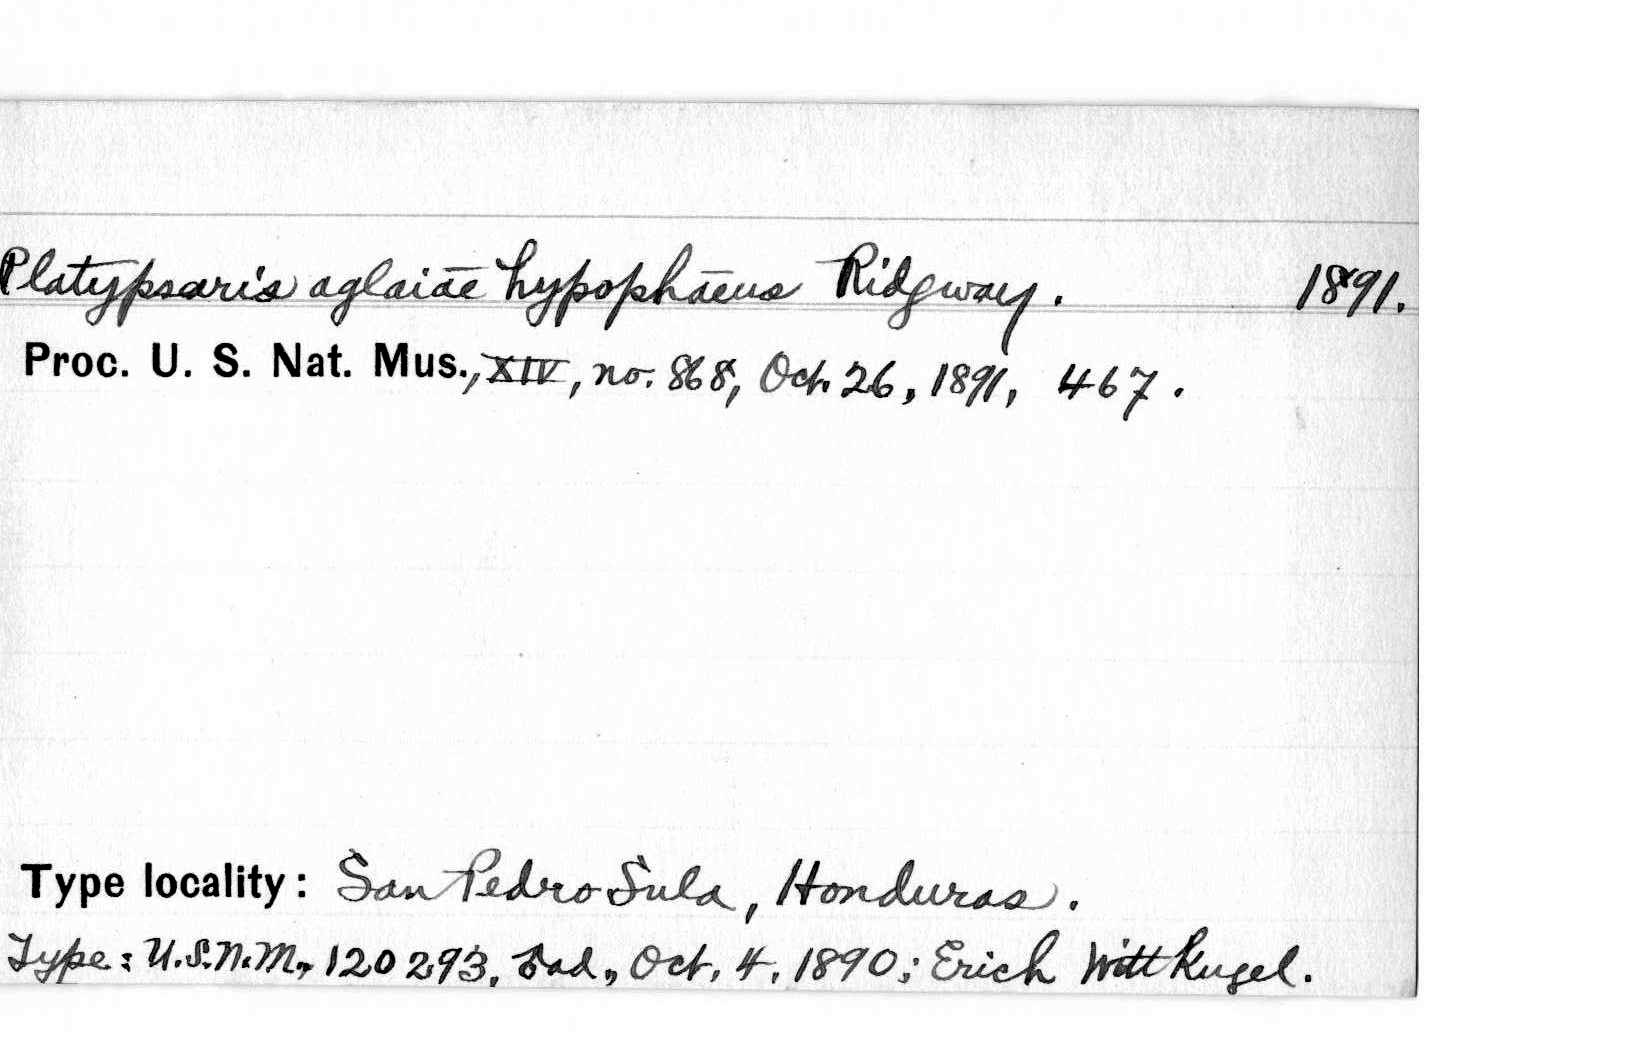 Platypsaris aglaiae hypophaeus Ridgway. 1891.
Proc. U. S. Nat. Mus., XIV, no. 868, Oct. 26, 1891, 467.
Type locality: San Pedro Sula, Honduras.
Type: U.S.N.M., 120293, ad., Oct. 4, 1890; Erich Wittkugel.